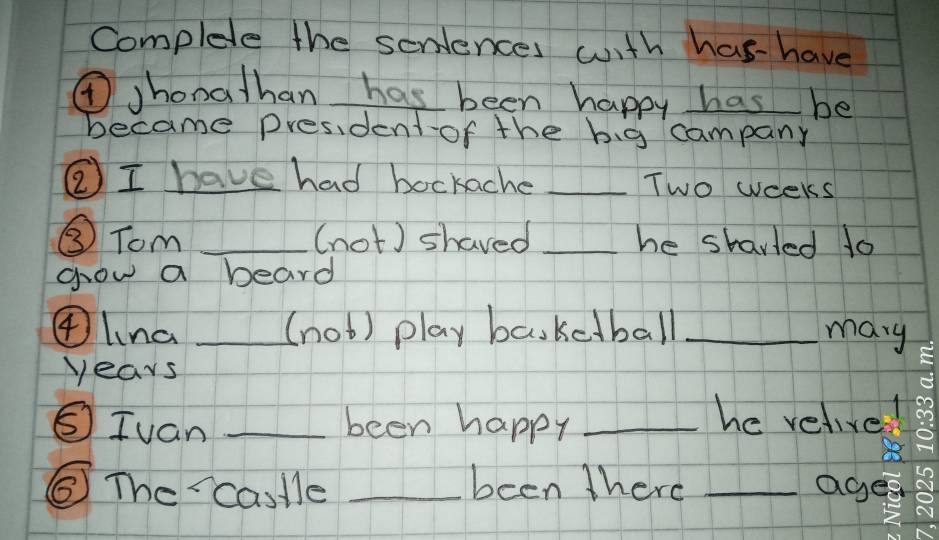 Complete the sentences with has-have
① Jhonathan has been happy has be
became president of the big campany
② I have had backache ____ Two weeks
③ Tom ____ (not) shaved ____ he started to
grow a beard
④ lina ____ (not) play basketball ____ many
years
⑤ Ivan ____ been happy ____ he retired
⑥ The castle ____ been there ____ ages
z Nicol
7, 2025 10:33 a. m.